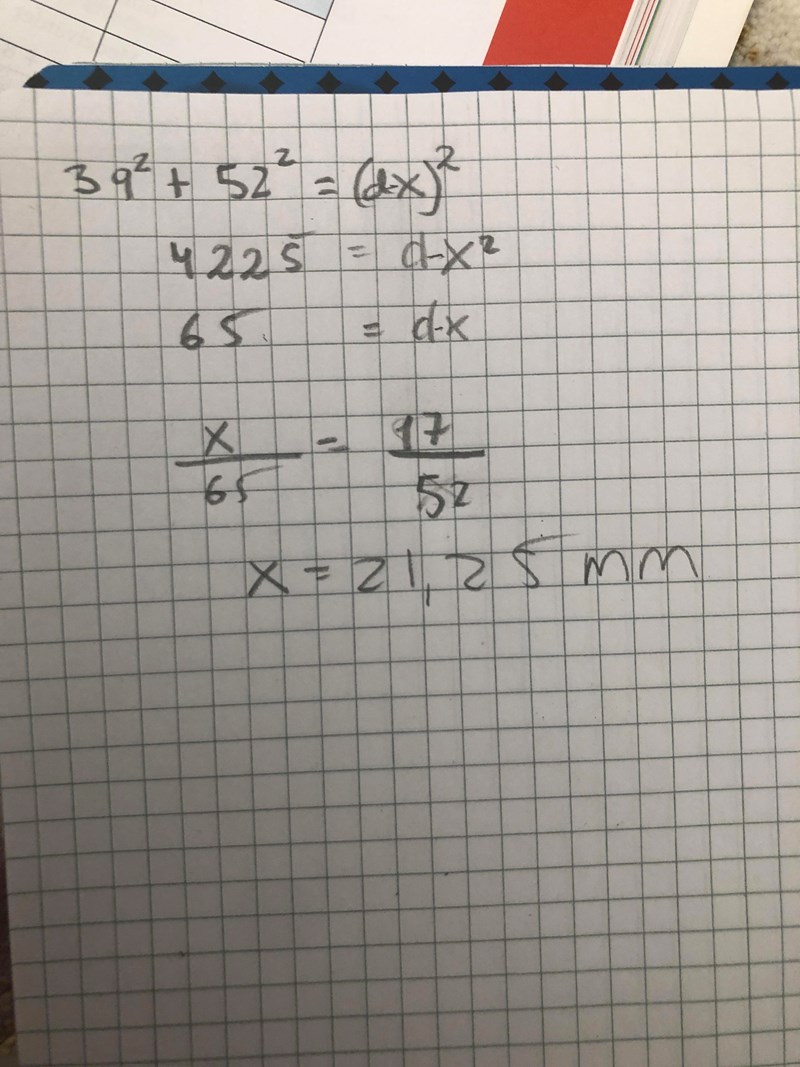 39² + 52² = (d-x)²
4225 = d-x²
65 = d-x
x/65 = 17/52
x = 21,25 mm